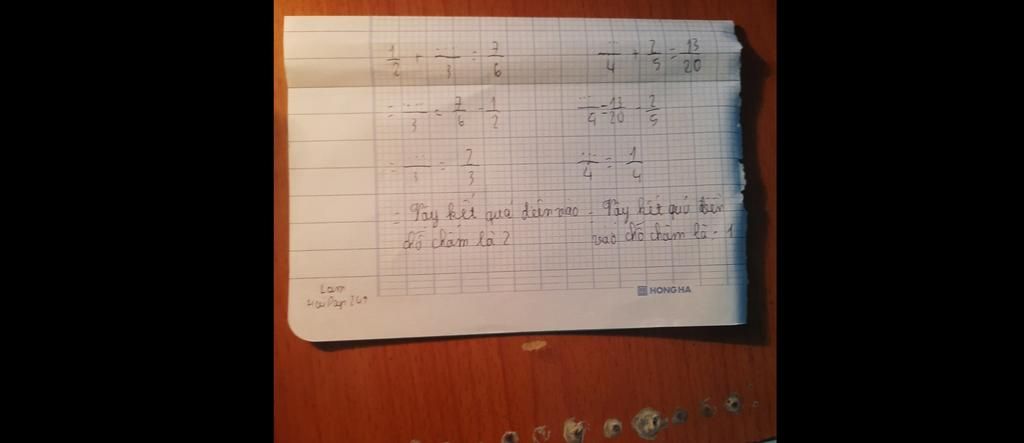 1/2 + .../3 = 7/6
.../4 + 2/5 = 13/20
= .../3 = 7/6 - 1/2
.../4 = 13/20 - 2/5
= .../3 = 2/3
.../4 = 1/4
= Vậy kết quả điền vào
chỗ chấm là 2
- Vậy kết quả điền
vào chỗ chấm là: 1
Lam
247
HONG HA